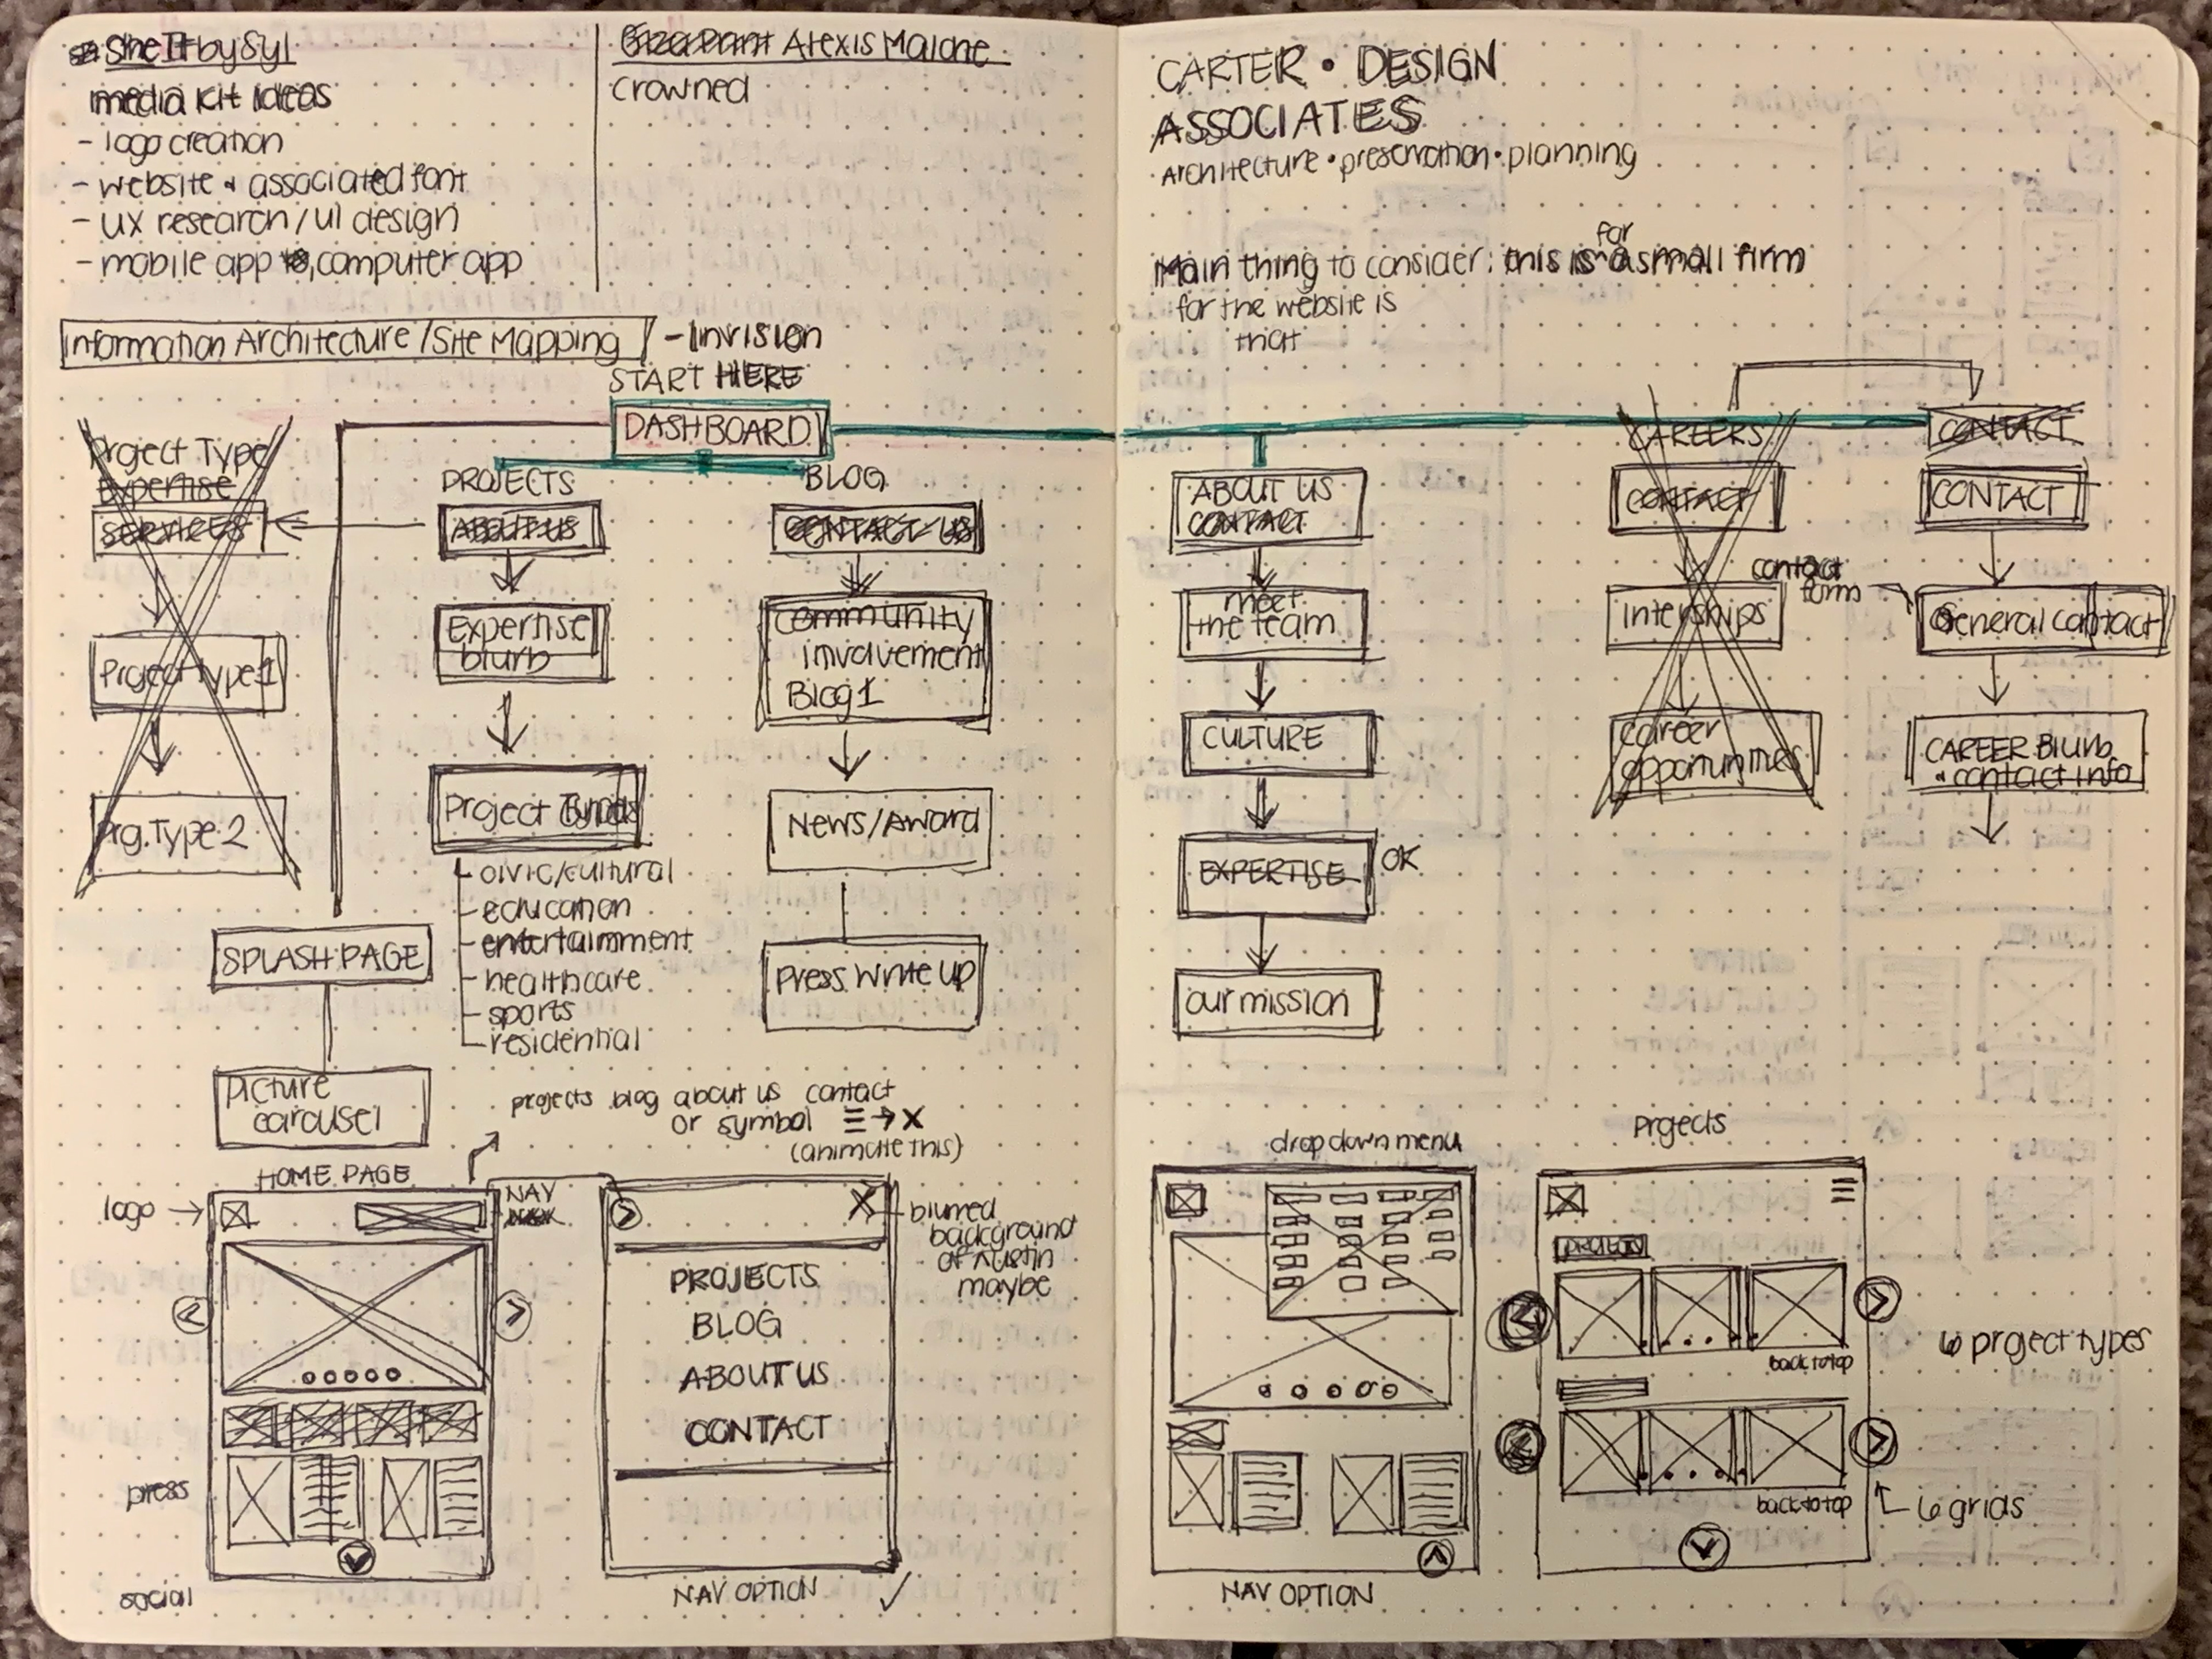 SheItbySyl
media kit ideas
- logo creation
- website & associated font
- UX research / UI design
- mobile app, computer app
Alexis Malone
crowned
Information Architecture / Site Mapping - Invision
START HERE
DASHBOARD
Project Type
Expertise
SERVICES
Project type 1
Prg. Type 2
PROJECTS
ABOUT US
Expertise
blurb
Project Types
civic/cultural
- education
- entertainment
- healthcare
- sports
residential
BLOG
CONTACT US
community
involvement
Blog 1
News/Award
Press Write up
SPLASH PAGE
picture
carousel
projects blog about us contact
or symbol ☰ → X
(animate this)
HOME PAGE
logo →
NAV
press
social
X
PROJECTS
BLOG
ABOUT US
CONTACT
blurred
background
of Austin
maybe
NAV OPTION ✓
CARTER • DESIGN
ASSOCIATES
Architecture • preservation • planning
Main thing to consider: this is for a small firm
for the website is
that
ABOUT US
CONTACT
meet
the team
CULTURE
EXPERTISE OK
our mission
CAREERS
CONTACT
Internships
career
opportunities
CONTACT
CONTACT
contact
form
General contact
CAREER Blurb
& contact info
drop down menu
NAV OPTION
Projects
PROJECTS
back to top
back to top
6 project types
6 grids